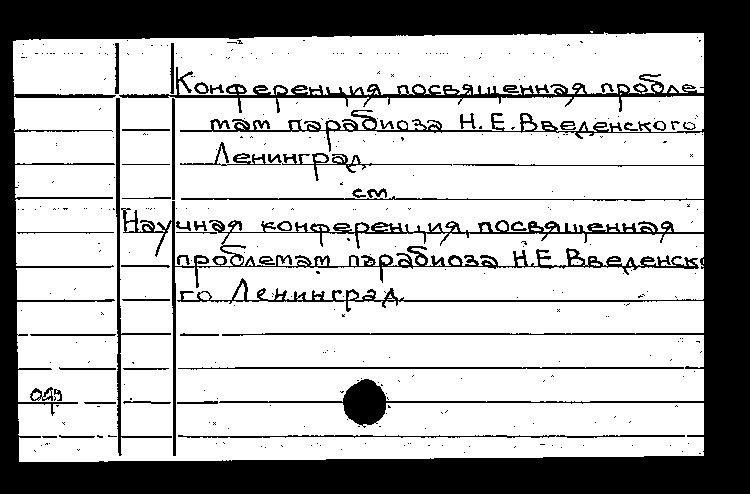 Конференция, посвященная пробле-
мам парабиоза Н.Е.Введенского.
Ленинград.
см.
Научная конференция, посвященная
проблемам парабиоза Н.Е.Введенско
го Ленинград.